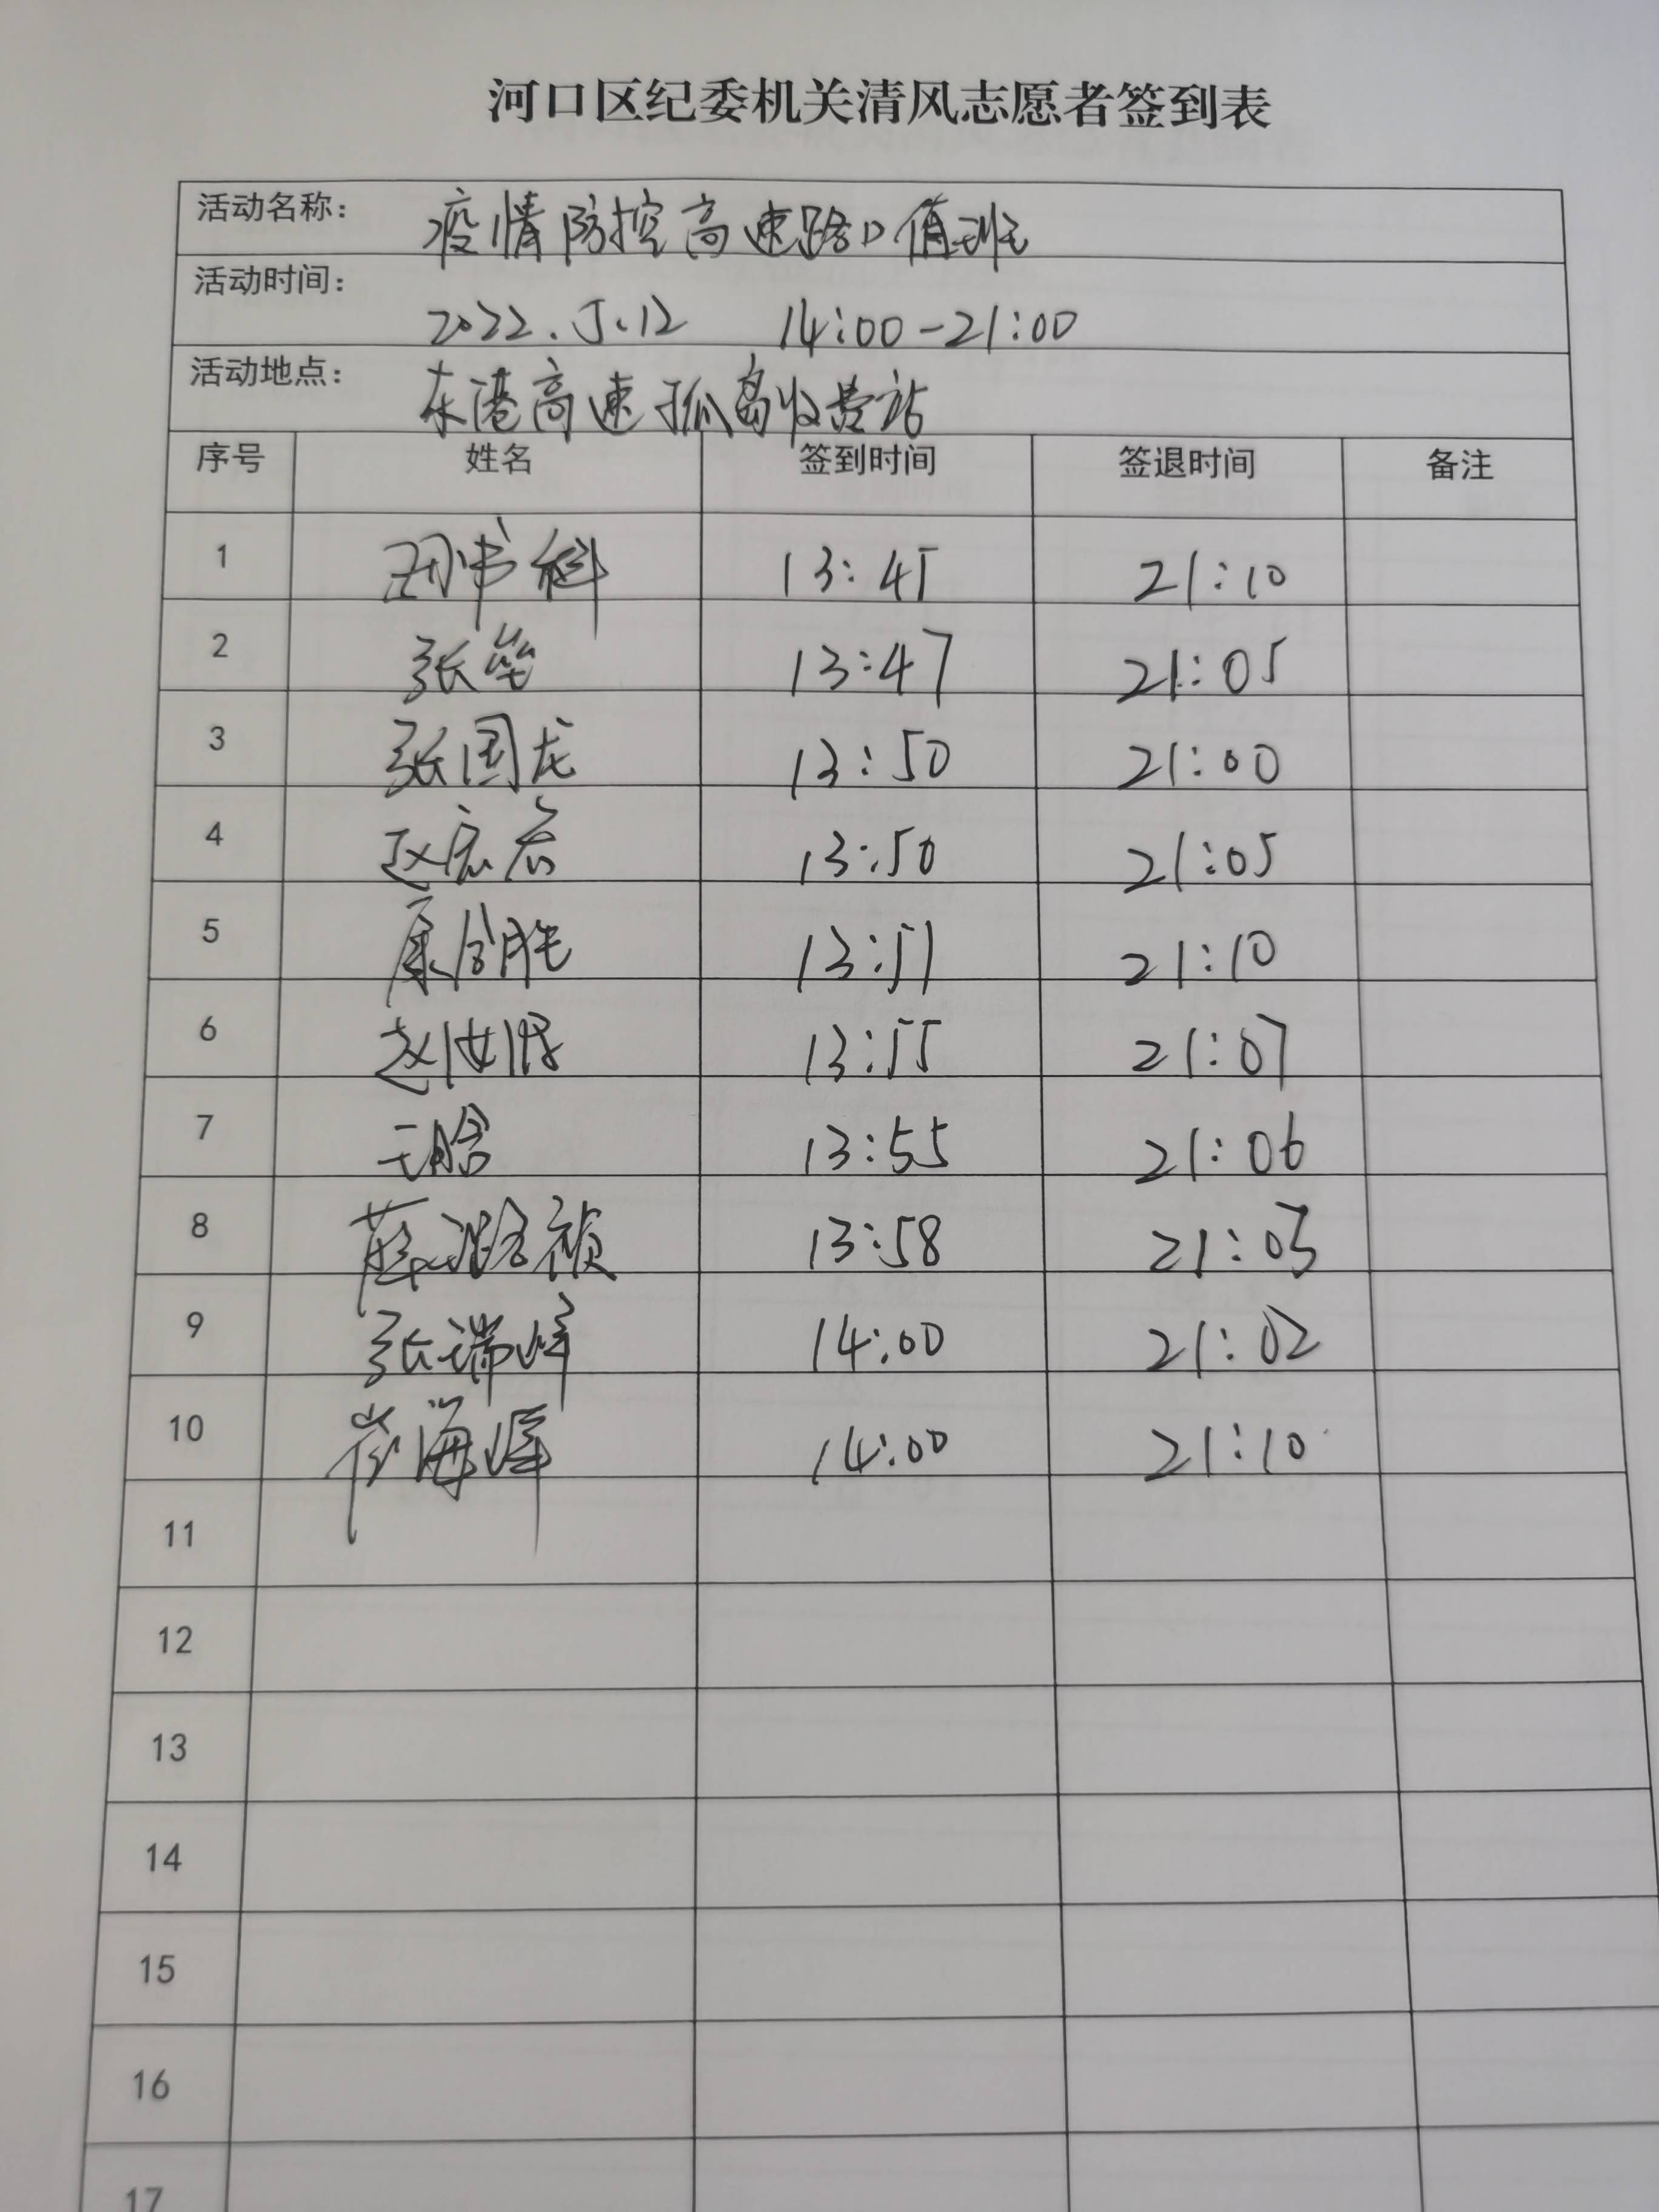 河口区纪委机关清风志愿者签到表
活动名称： 疫情防控高速路口值班
活动时间： 2022.5.12 14:00-21:00
活动地点： 东港高速孤岛收费站
序号 姓名 签到时间 签退时间 备注
1 13:45 21:10
2 张笔 13:47 21:05
3 张国龙 13:50 21:00
4 赵宏宏 13:50 21:05
5 康金胜 13:51 21:10
6 赵 13:55 21:07
7 王晗 13:55 21:06
8 薛璐祯 13:58 21:05
9 张瑞峰 14:00 21:02
10 崔海峰 14:00 21:10
11
12
13
14
15
16
17